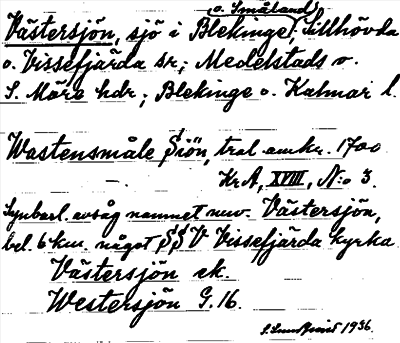 o. Småland
Västersjön, sjö i Blekinge, Tillhövda
o. Vissefjärda sr.; Medelstads o.
S. Möre hdr; Blekinge o. Kalmar l.
Wastensmåle Siön, trol. omkr. 1700
Kr.A, XVIII, N:o 3.
Synbarl. avsåg namnet nuv. Västersjön,
bel. 6 km. något SSV Vissefjärda kyrka
Västersjön ek.
Westersjön G. 16.
1936.